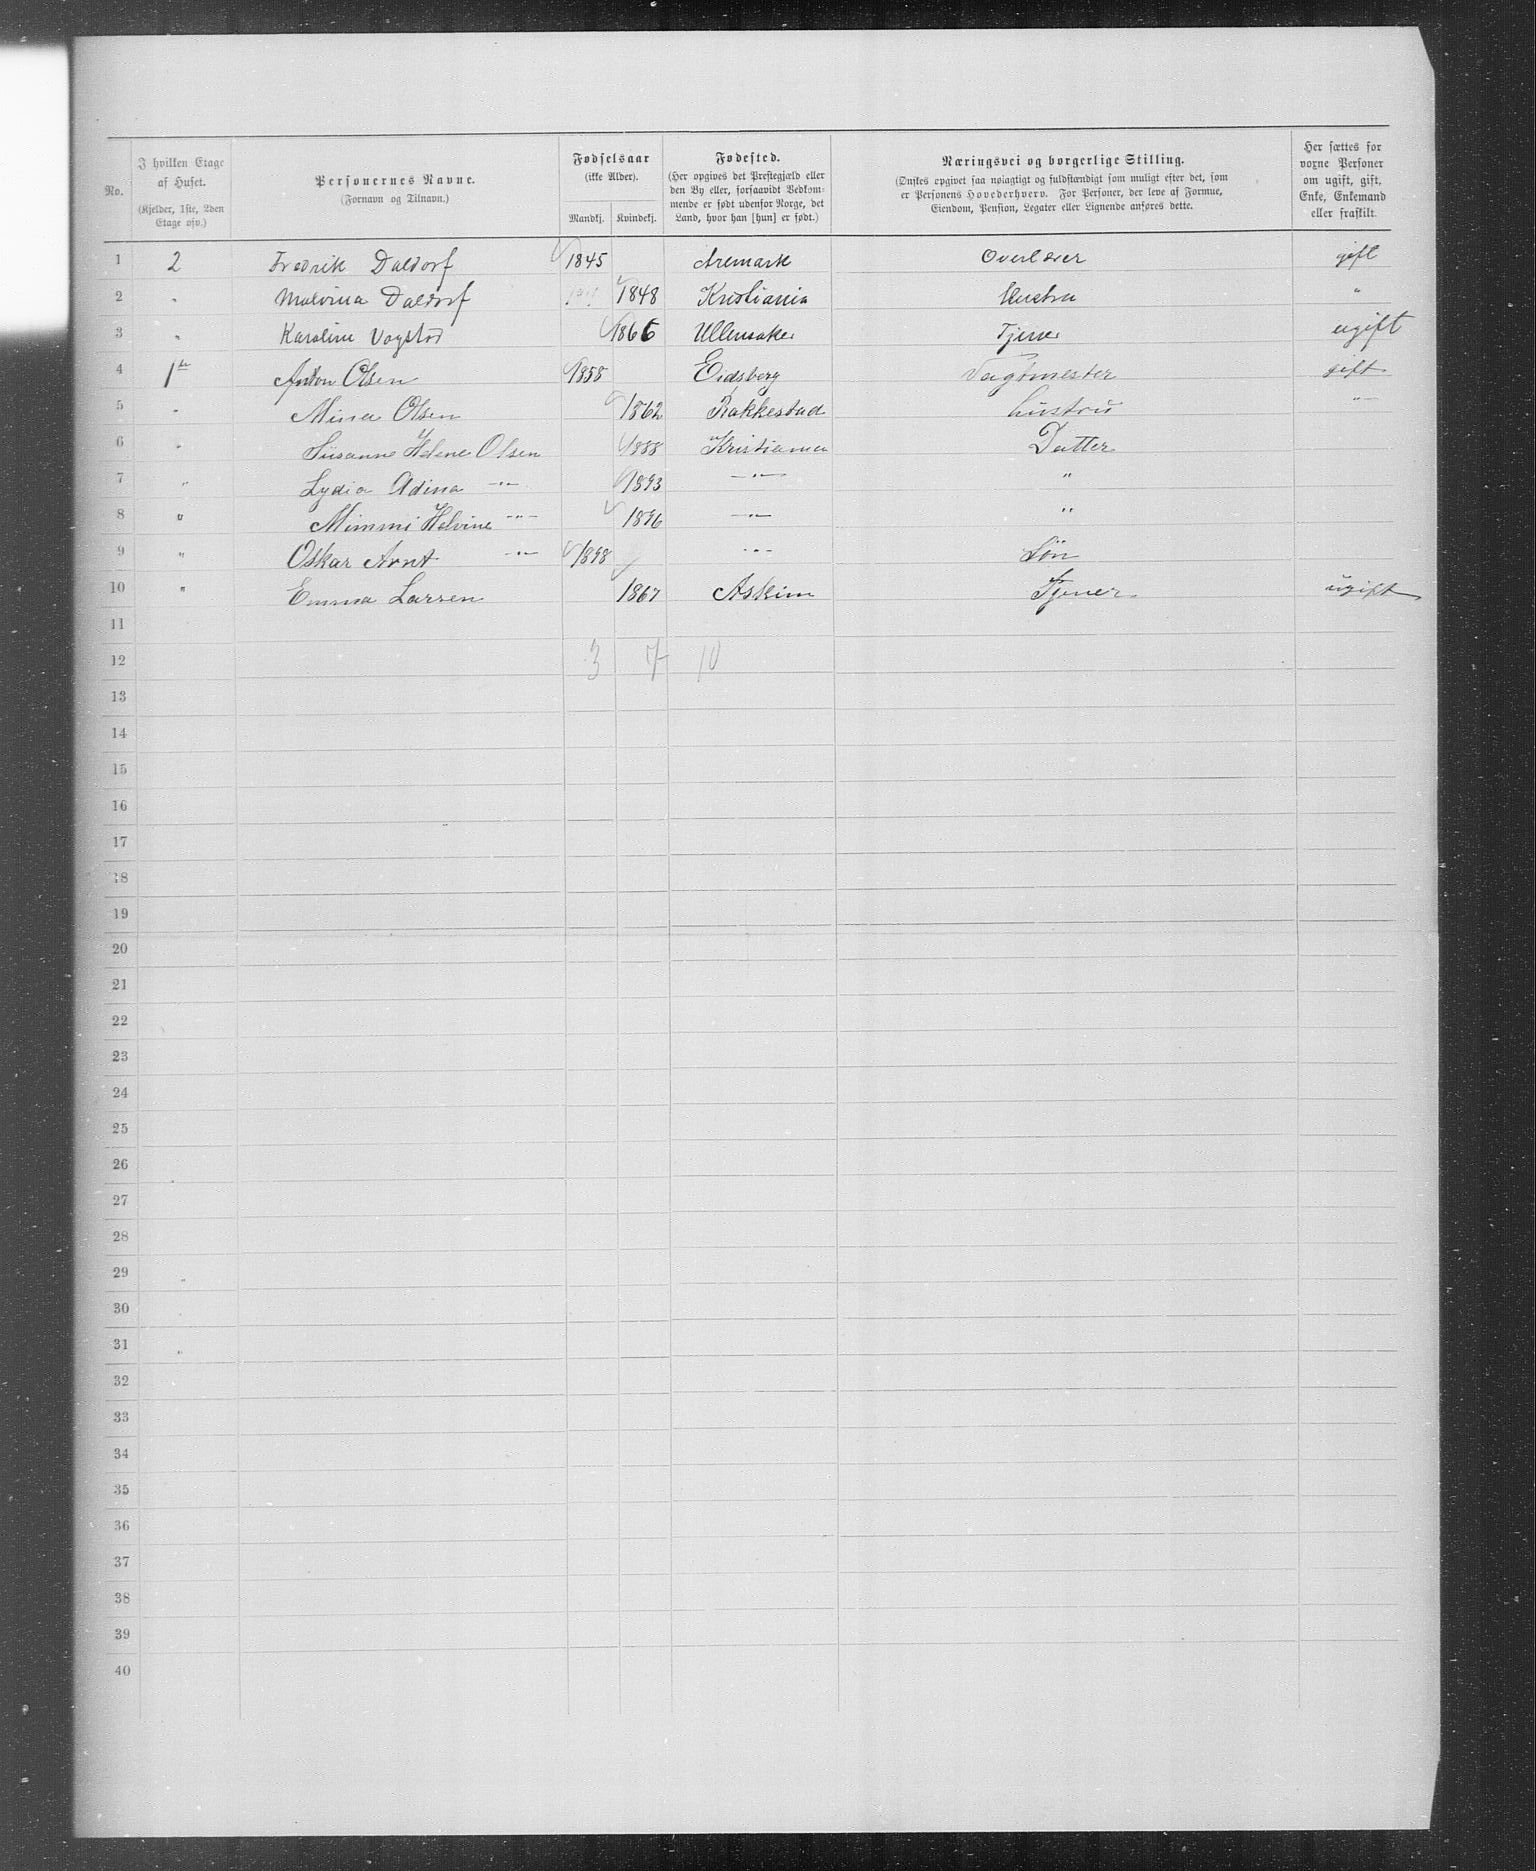 No. I hvilken Etage af Huset. (Kjelder, 1ste, 2den Etage osv.) Personernes Navne. (Fornavn og Tilnavn.) Fødselsaar (ikke Alder). Mandkj. Kvindekj. Fødested. (Her opgives det Præstegjæld eller den By eller, forsaavidt Vedkommende er født udenfor Norge, det Land, hvor han [hun] er født.) Næringsvei og borgerlige Stilling. (Ønskes opgivet saa nøiagtigt og fuldstændigt som muligt efter det, som er Personens Hovederhverv. For Personer, der leve af Formue, Eiendom, Pension, Legater eller Lignende anføres dette. Her sættes for voxne Personer om ugift, gift, Enke, Enkemand eller fraskilt.
1 2 Fredrik Daldorf 1845 Aremark Overlærer gift
2 " Malvina Daldorf 1848 Kristiania Hustru "
3 " Karoline Vogstad 1866 Ullensaker Tjener ugift
4 1ste Anton Olsen 1858 Eidsberg Vagtmester gift
5 " Mina Olsen 1862 Rakkestad hustru - " -
6 " Susanne Helene Olsen 1888 Kristiania Datter
7 " Lydia Adina - " - 1893 - " - "
8 " Mimmi Helvine - " - 1896 - " - "
9 " Oskar Arnt - " - 1898 - " - Søn
10 " Emma Larsen 1867 Askim Tjener ugift
11
12 3 7 10
13
14
15
16
17
18
19
20
21
22
23
24
25
26
27
28
29
30
31
32
33
34
35
36
37
38
39
40